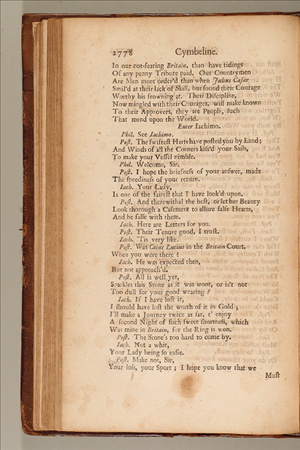 2778 Cymbeline.
In our not-fearing Britain, than have tidings
Of any penny Tribute paid. Our Countrymen
Are Men more order'd than when Julius Cæsar
Smil'd at their lack of Skill, but found their Courage
Worthy his frowning at. Their Discipline,
Now mingled with their Courages, will make known
To their Approvers, they are People, such
That mend upon the World.
Enter Iachimo.
Phil. See Iachimo.
Post. The swiftest Harts have posted you by Land;
And Winds of all the Corners kiss'd your Sails,
To make your Vessel nimble.
Phil. Welcome, Sir.
Post. I hope the briefness of your answer, made
The speediness of your return.
Iach. Your Lady,
Is one of the fairest that I have look'd upon.
Post. And therewithal the best, or let her Beauty
Look thorough a Casement to allure false Hearts,
And be false with them.
Iach. Here are Letters for you.
Post. Their Tenure good, I trust.
Iach. 'Tis very like.
Post. Was Caius Lucius in the Britain Court,
When you were there?
Iach. He was expected then,
But not approach'd.
Post. All is well yet,
Sparkles this Stone as it was wont, or is't not
Too dull for your good wearing?
Iach. If I have lost it,
I should have lost the worth of it in Gold;
I'll make a Journey twice as far, t' enjoy
A second Night of such sweet shortness, which
Was mine in Britain, for the Ring is won.
Post. The Stone's too hard to come by.
Iach. Not a whit,
Your Lady being so easie.
Post. Make not, Sir,
Your loss, your Sport; I hope you know that we
Must